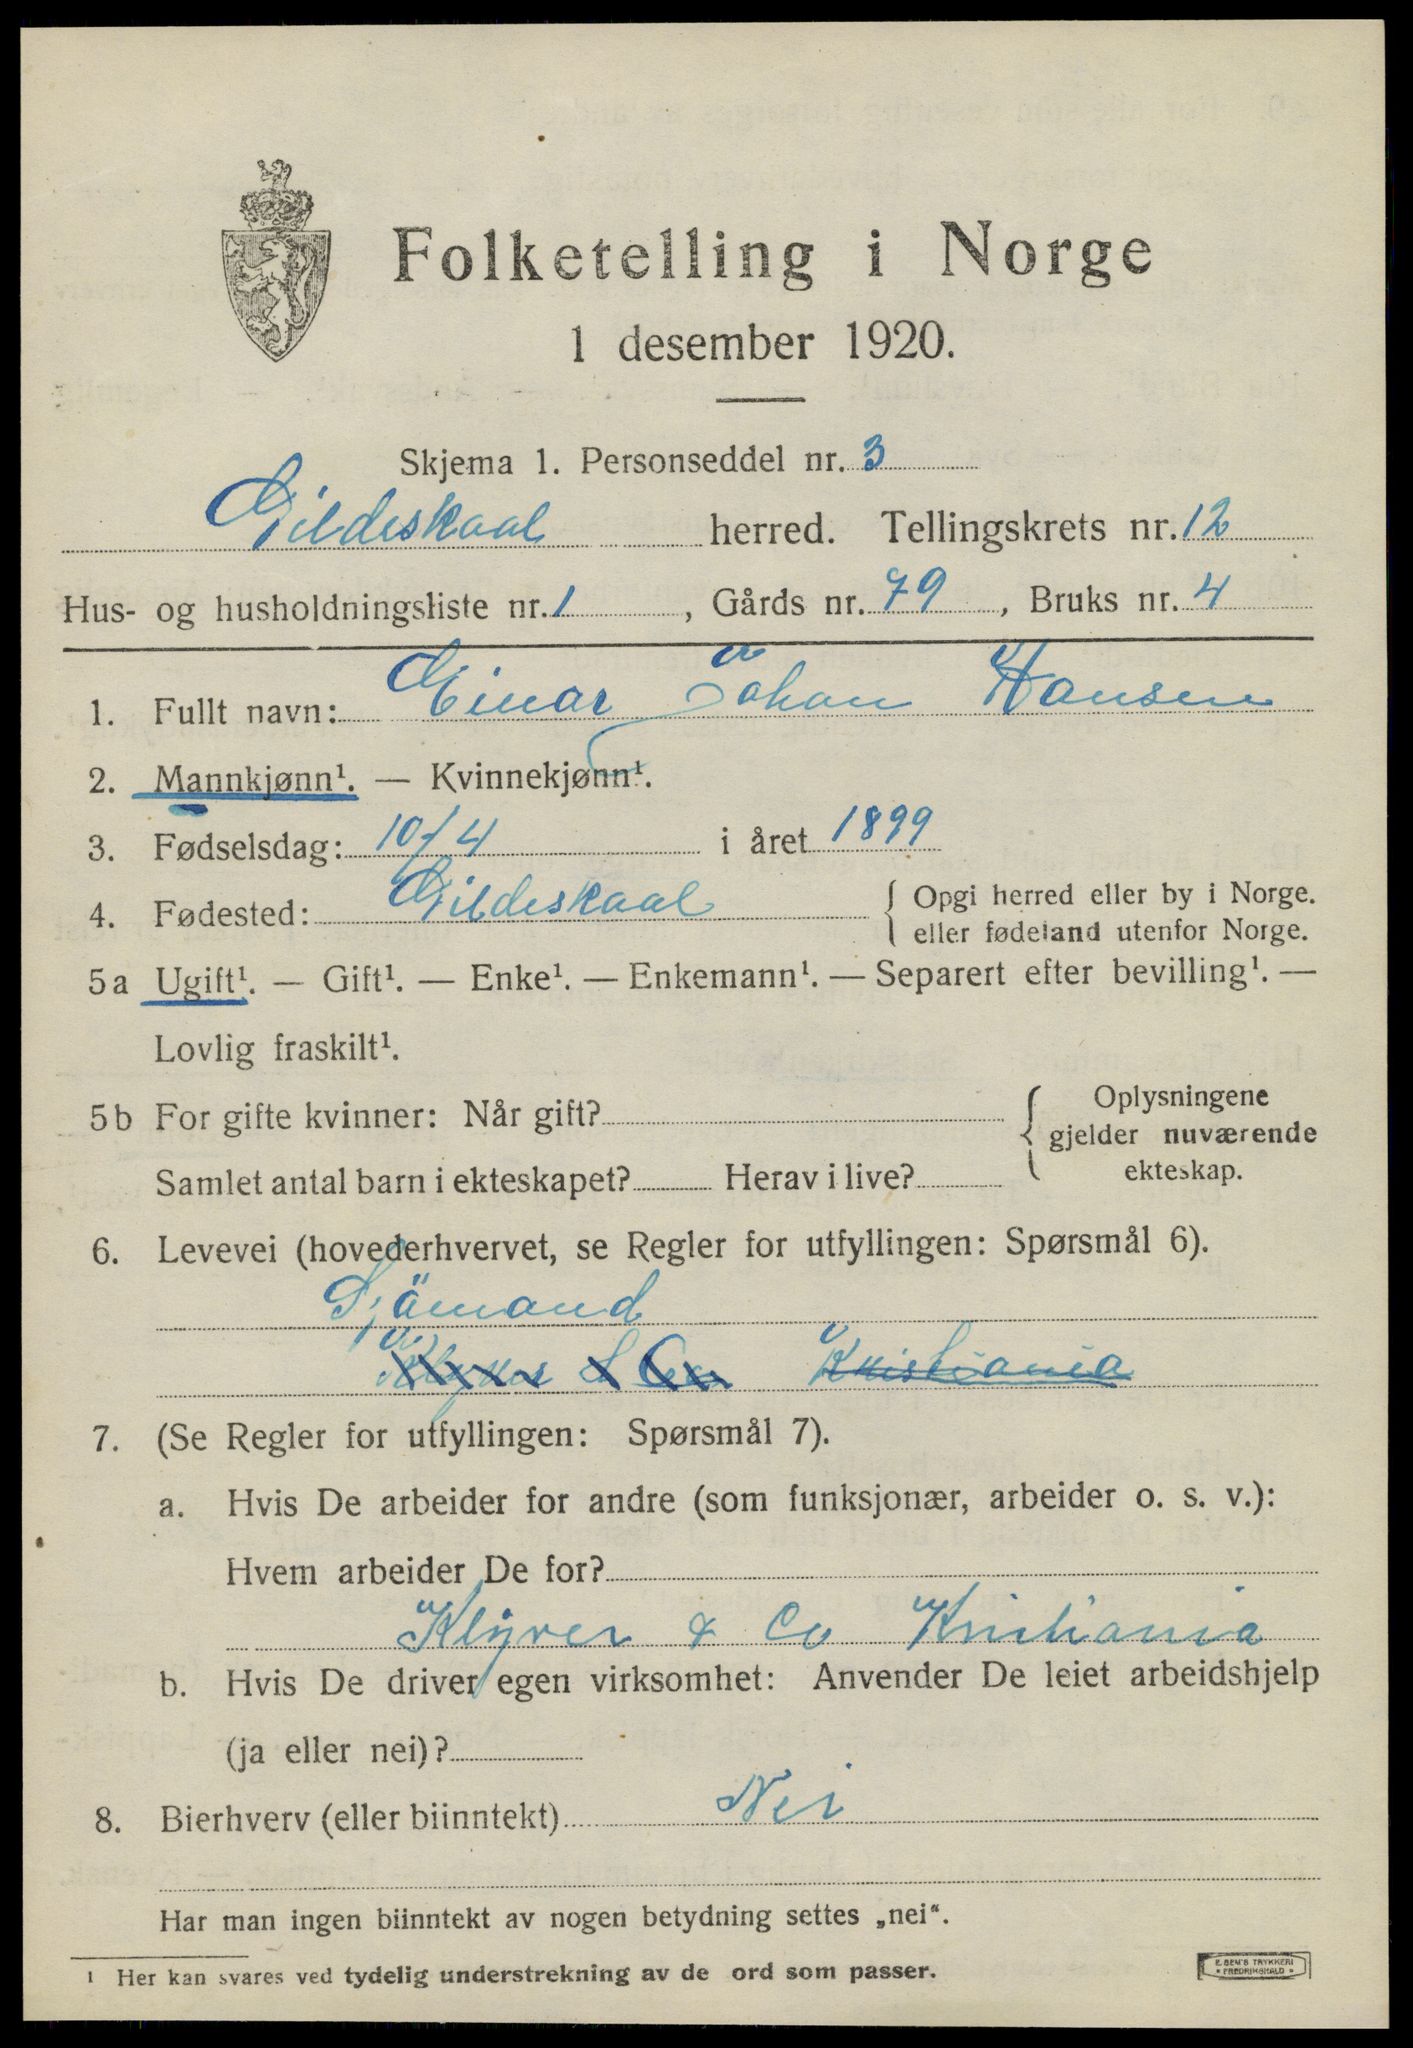 Folketelling i Norge
1 desember 1920.
Skjema 1. Personseddel nr. 3
Gildeskaal herred. Tellingskrets nr. 12
Hus- og husholdningsliste nr. 1, Gårds nr. 79, Bruks nr. 4
1. Fullt navn: Einar Johan Hansen
2. Mannkjønn¹. — Kvinnekjønn¹.
3. Fødselsdag: 10/4 i året 1899
4. Fødested: Gildeskaal { Opgi herred eller by i Norge.
eller fødeland utenfor Norge.
5a Ugift¹. — Gift¹. — Enke¹. — Enkemann¹. — Separert efter bevilling¹. —
Lovlig fraskilt¹.
5b For gifte kvinner: Når gift? { Oplysningene
gjelder nuværende
ekteskap.
Samlet antal barn i ekteskapet? Herav i live?
6. Levevei (hovederhvervet, se Regler for utfyllingen: Spørsmål 6).
Sjömand
Kristiania
7. (Se Regler for utfyllingen: Spørsmål 7).
a. Hvis De arbeider for andre (som funksjonær, arbeider o. s. v.):
Hvem arbeider De for?
Klyver & Co Kristiania
b. Hvis De driver egen virksomhet: Anvender De leiet arbeidshjelp
(ja eller nei)?
8. Bierhverv (eller biinntekt) Nei
Har man ingen biinntekt av nogen betydning settes „nei“.
¹ Her kan svares ved tydelig understrekning av de ord som passer.
E. SEM'S TRYKKERI
FREDRIKSHALD